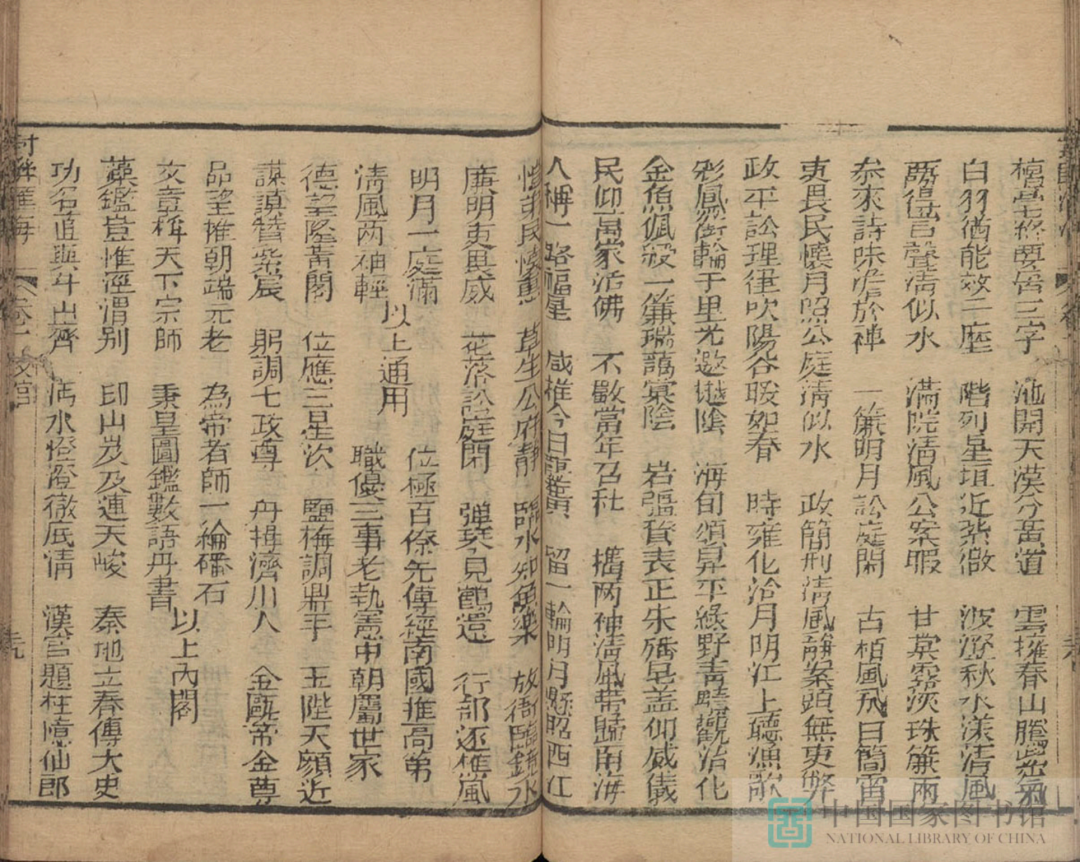 三字 池開天漢分黃道 雲擁春山騰紫氣
白羽猶能效二塵 階列星垣近紫微 波澄秋水漾清風
兩得聲清似水 滿院清風公案暇 甘棠雾淡珠簾雨
參來詩味澹於禪 一簾明月訟庭閑 古栢風飛白簡霜
吏畏民懷月照公庭清似水 政簡刑清風靜案頭無吏弊
政平訟理律吹陽谷暖如春 時雍化洽月明江上聽漁歌
彩鳳銜輪千里尤邀樾陰 海甸頌昇平綠野青疇觀治化
金魚佩綬一簾瑞藹棠陰 岩疆資表正朱旛皂盖仰威儀
民仰萬家活佛 不數當年召杜 攜兩袖清風帶歸南海
人稱一路福星 咸推今日龔黃 留一輪明月懸照西江
民懷惠 草生公府靜 臨水知魚樂 放衙臨鏡水
廉明吏畏威 花落訟庭閑 彈琴見鶴還 行部還椎風
明月一庭滿
清風兩袖輕 以上通用
位極百僚先傳經南國推高第
職優三事老執憲中朝屬世家
德望隆黃閣 位應三星次 鹽梅調鼎手 玉陛天顔近
謀謨贊紫宸 躬調七政尊 舟楫濟川人 金甌帝念尊
品望推朝端元老 為帝者師一綸磻石
文章稱天下宗師 秉皇圖鑑數語丹書 以上內閣
藻鑑豈惟涇渭别 印山岌岌連天峻 秦地立春傳太史
功名直與斗山齊 沔水澄澄徹底清 漢宫題柱憶仙郎
卷一
中国国家图书馆
NATIONAL LIBRARY OF CHINA